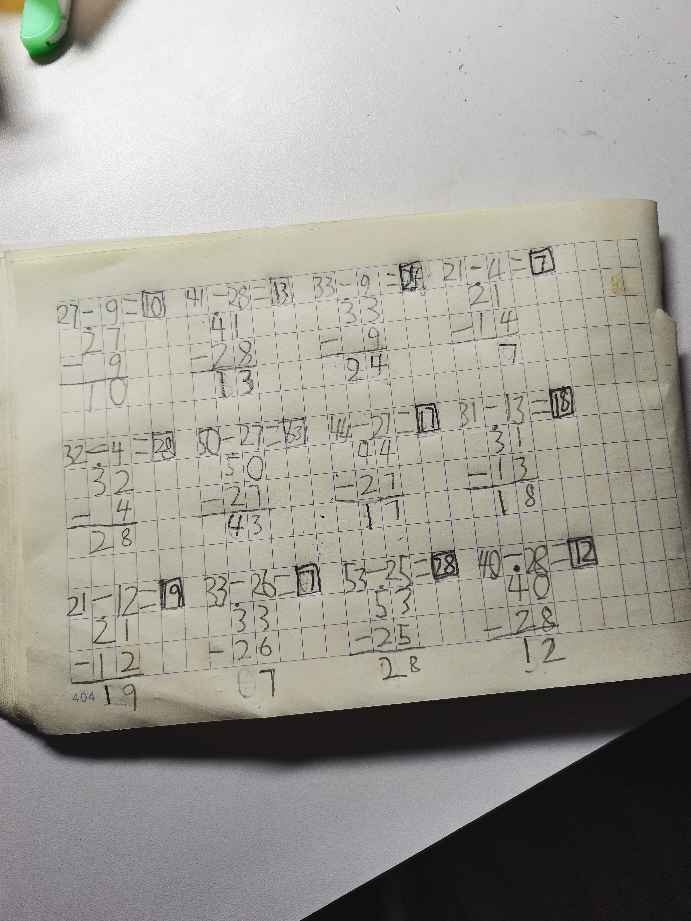 27-9=10 41-28=13 33-9=24 21-4=7
27 41 33 21
-9 -28 -9 -14
10 13 24 7
32-4=28 50-27=33 44-27=17 31-13=18
32 50 44 31
-4 -27 -27 -13
28 43 17 18
21-12=19 33-26=7 53-25=28 40-28=12
21 33 53 40
-12 -26 -25 -28
19 07 28 12
404